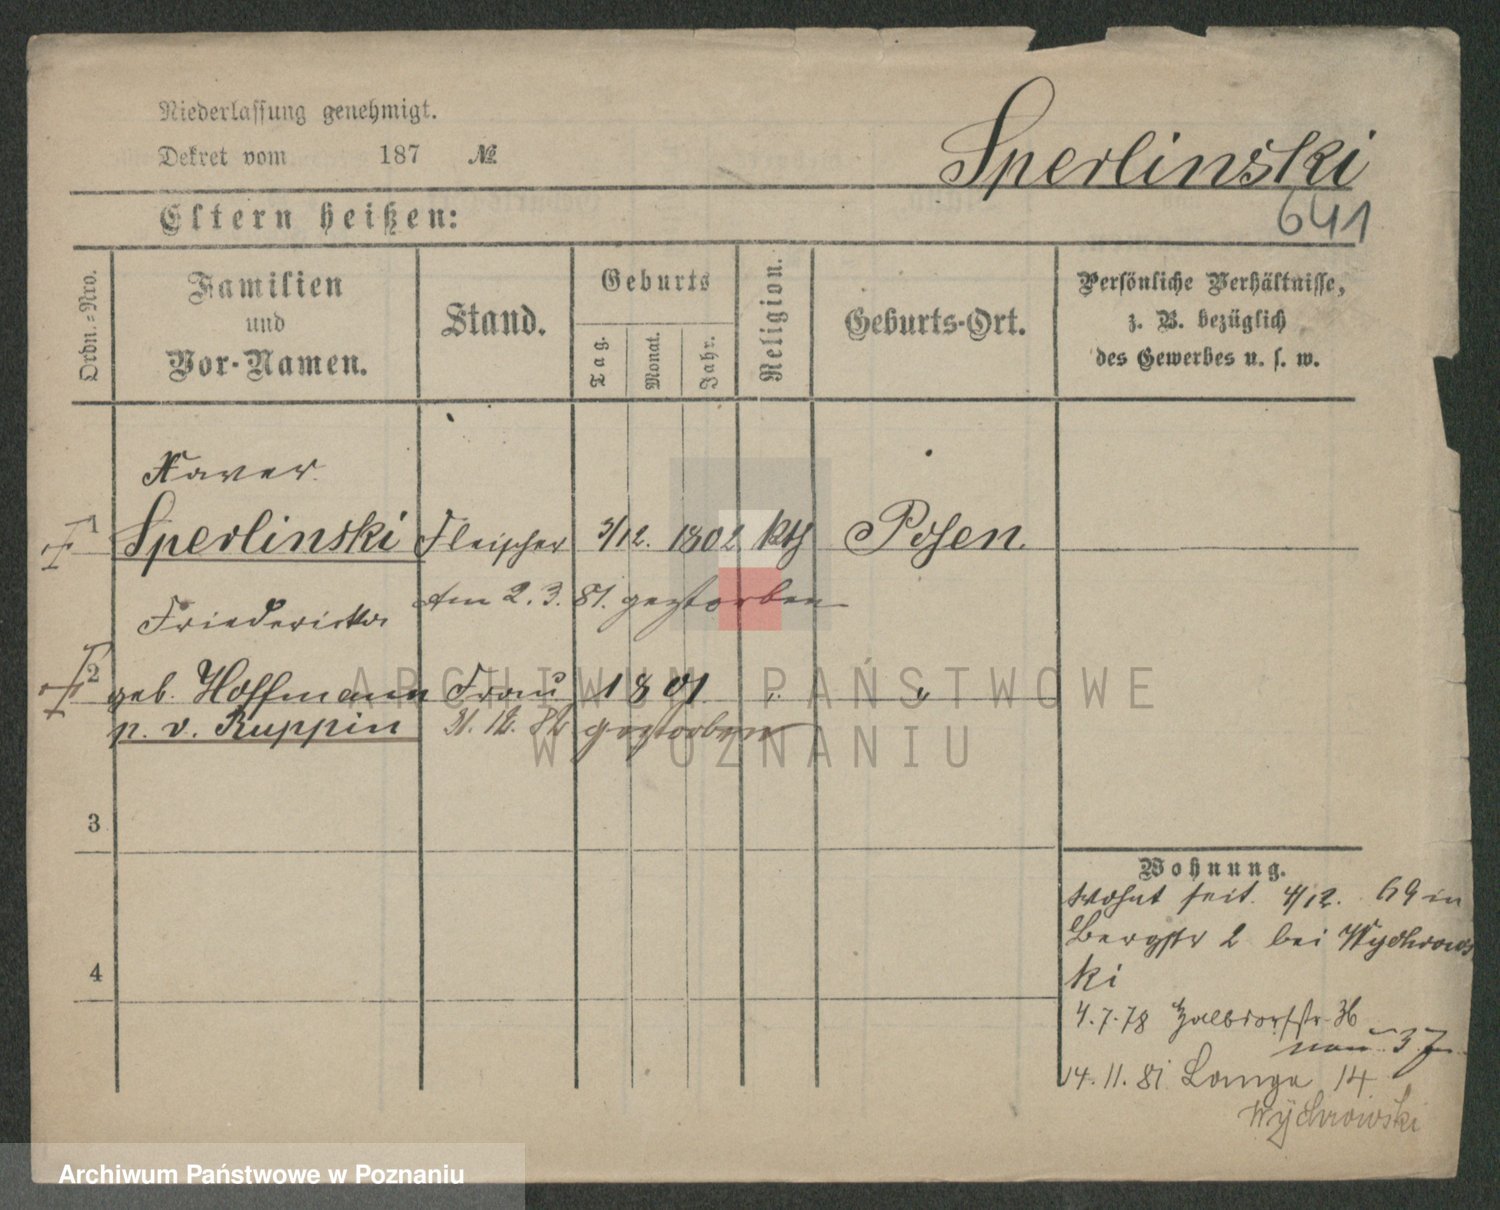 Niederlassung genehmigt.
Dekret vom 187 №
Sperlinski
641
Eltern heißen:
Ordn.-Nro.
Familien
und
Vor-Namen.
Stand.
Geburts
Tag.
Monat.
Jahr.
Religion.
Geburts-Ort.
Persönliche Verhältnisse,
z. B. bezüglich
des Gewerbes u. s. w.
Xaver
1 Sperlinski Fleischer 3/12. 1802 kth Posen.
Am 2. 3. 81. gestorben
Friedericke
2 geb. Hoffmann Frau 1801 " "
p. v. Ruppin 31. 12. 82 gestorben
3
4
Wohnung.
Wohnt seit 4/12. 69 in
Bergstr 2 bei Wychrows
ki
4.7.78 Halbdorfstr. 36
neu
14. 11. 81 Lange 14
Wychrowski
ARCHIWUM PAŃSTWOWE
W POZNANIU
Archiwum Państwowe w Poznaniu